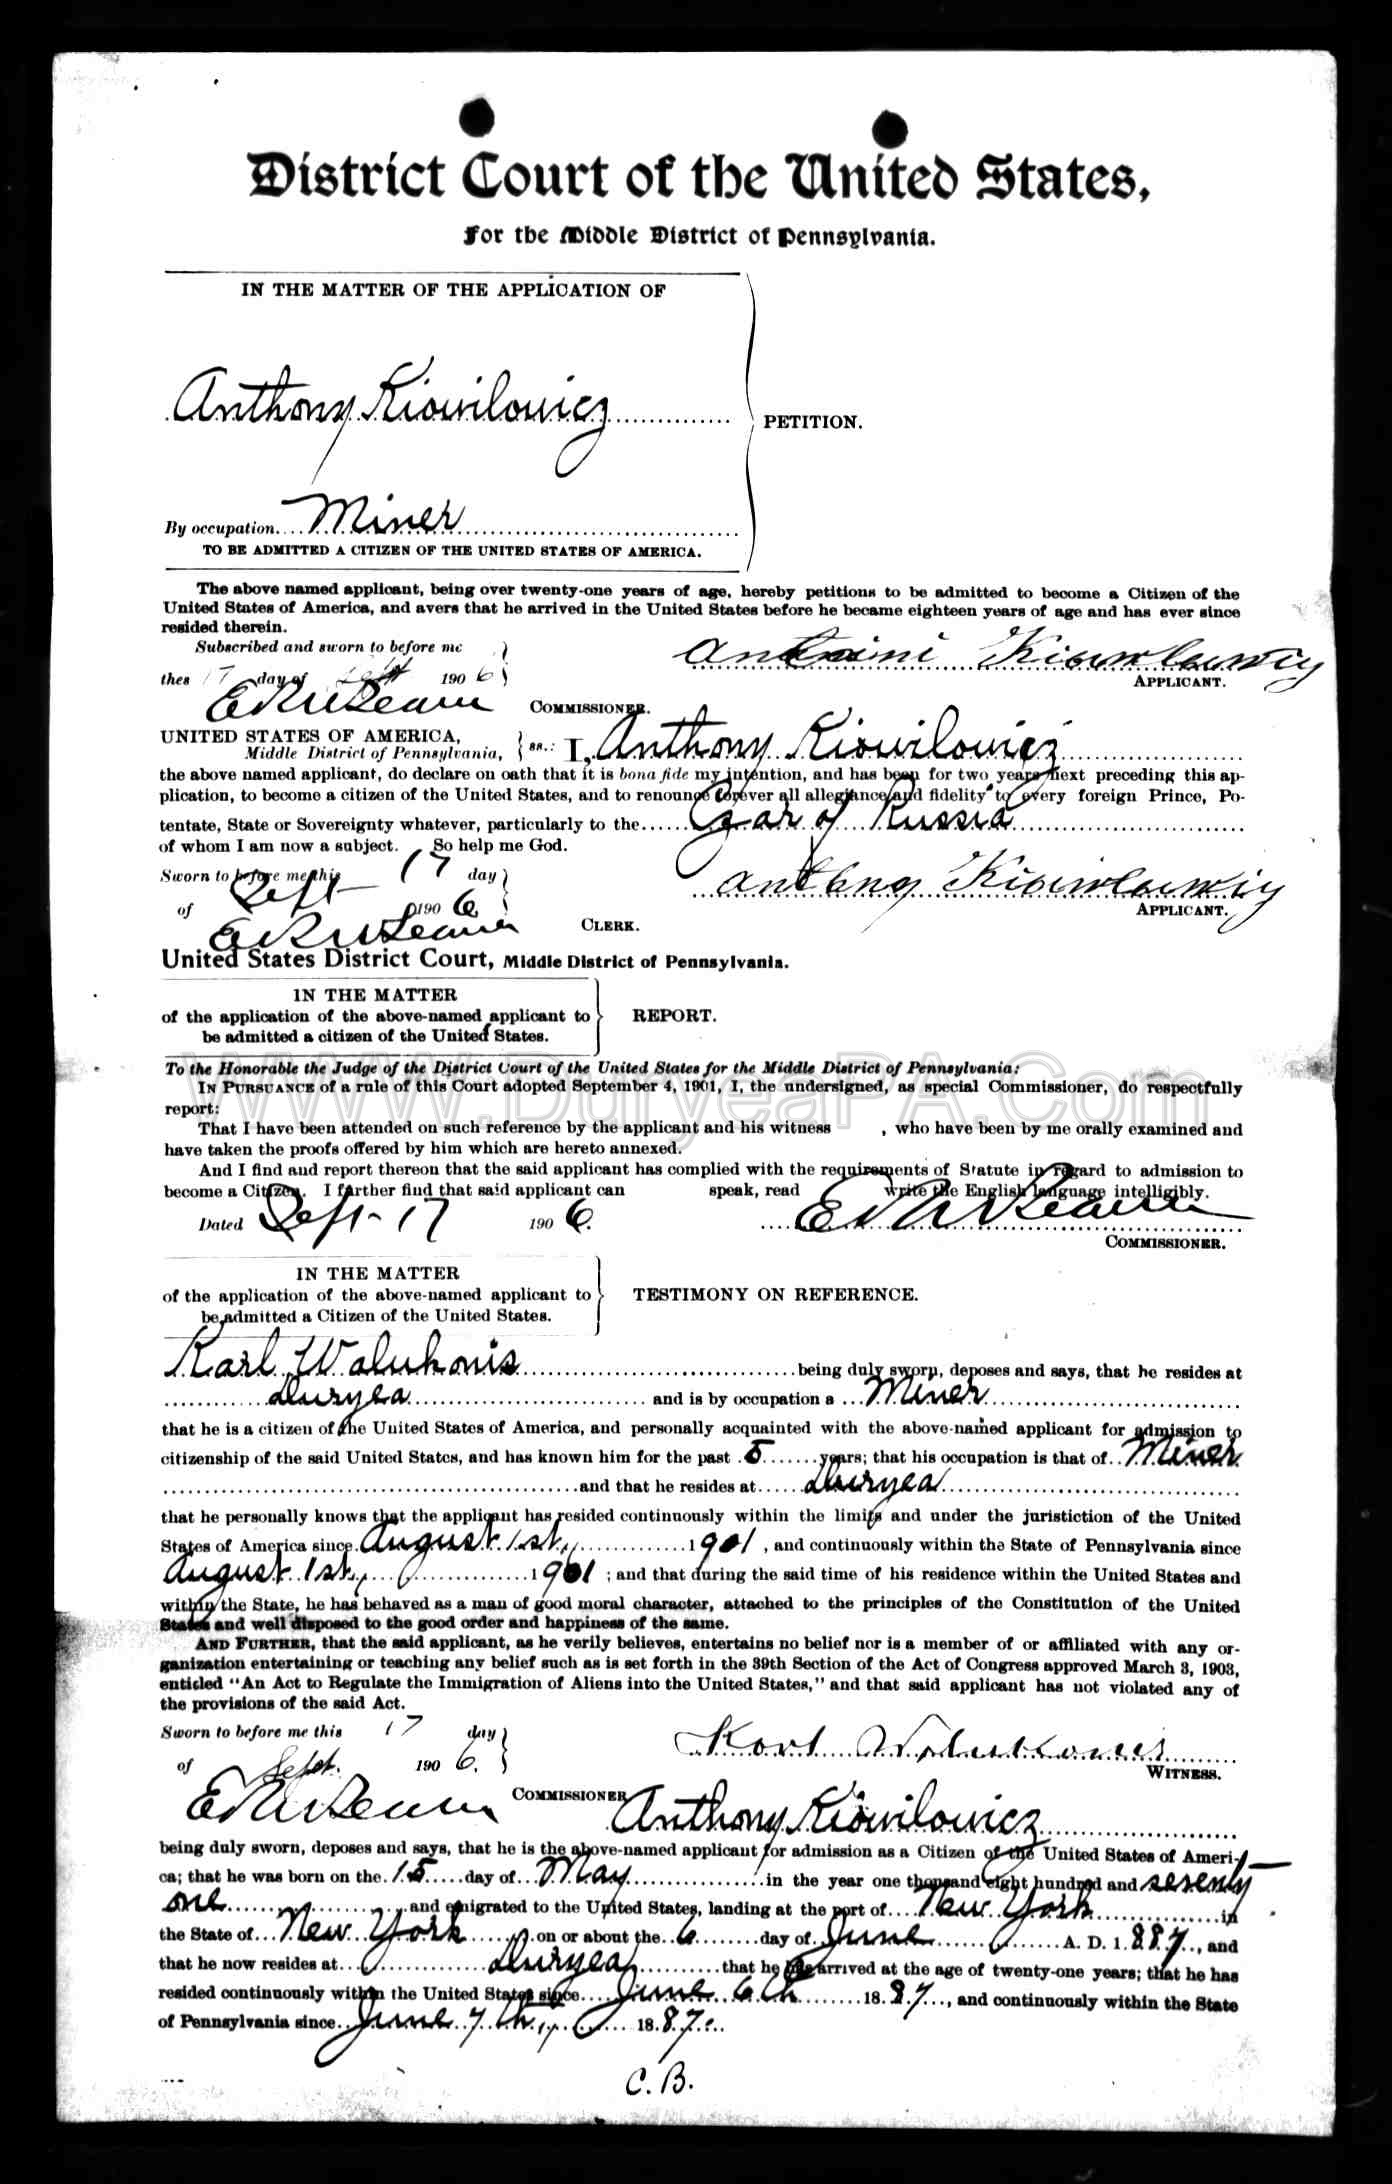 District Court of the United States,
For the Middle District of Pennsylvania.
IN THE MATTER OF THE APPLICATION OF
Anthony Kiowilowicz
PETITION.
By occupation Miner
TO BE ADMITTED A CITIZEN OF THE UNITED STATES OF AMERICA.
The above named applicant, being over twenty-one years of age, hereby petitions to be admitted to become a Citizen of the
United States of America, and avers that he arrived in the United States before he became eighteen years of age and has ever since
resided therein.
Subscribed and sworn to before me
thes 17 day of Sept 1906
APPLICANT.
COMMISSIONER.
UNITED STATES OF AMERICA,
Middle District of Pennsylvania, ss.: I, Anthony Kiowilowicz
the above named applicant, do declare on oath that it is bona fide my intention, and has been for two years next preceding this ap-
plication, to become a citizen of the United States, and to renounce forever all allegiance and fidelity to every foreign Prince, Po-
tentate, State or Sovereignty whatever, particularly to the Czar of Russia
of whom I am now a subject. So help me God.
Sworn to before me this 17 day
Anthony
of Sept 1906
APPLICANT.
CLERK.
United States District Court, Middle District of Pennsylvania.
IN THE MATTER
of the application of the above-named applicant to
be admitted a citizen of the United States.
REPORT.
To the Honorable the Judge of the District Court of the United States for the Middle District of Pennsylvania:
IN PURSUANCE of a rule of this Court adopted September 4, 1901, I, the undersigned, as special Commissioner, do respectfully
report:
WWW.DuryeaPA.Com
That I have been attended on such reference by the applicant and his witness , who have been by me orally examined and
have taken the proofs offered by him which are hereto annexed.
And I find and report thereon that the said applicant has complied with the requirements of Statute in regard to admission to
become a Citizen. I farther find that said applicant can speak, read write the English language intelligibly.
Dated Sept 17 1906.
COMMISSIONER.
IN THE MATTER
of the application of the above-named applicant to
be admitted a Citizen of the United States.
TESTIMONY ON REFERENCE.
Karl Walukonis being duly sworn, deposes and says, that he resides at
Duryea and is by occupation a Miner
that he is a citizen of the United States of America, and personally acquainted with the above-named applicant for admission to
citizenship of the said United States, and has known him for the past 5 years; that his occupation is that of Miner
and that he resides at Duryea
that he personally knows that the applicant has resided continuously within the limits and under the juristiction of the United
States of America since August 1st, 1901, and continuously within the State of Pennsylvania since
August 1st, 1901; and that during the said time of his residence within the United States and
within the State, he has behaved as a man of good moral character, attached to the principles of the Constitution of the United
States and well disposed to the good order and happiness of the same.
AND FURTHER, that the said applicant, as he verily believes, entertains no belief nor is a member of or affiliated with any or-
ganization entertaining or teaching any belief such as is set forth in the 39th Section of the Act of Congress approved March 3, 1903,
entitled "An Act to Regulate the Immigration of Aliens into the United States," and that said applicant has not violated any of
the provisions of the said Act.
Sworn to before me this 17 day
of Sept. 1906.
WITNESS.
COMMISSIONER
Anthony Kiowilowicz
being duly sworn, deposes and says, that he is the above-named applicant for admission as a Citizen of the United States of Ameri-
ca; that he was born on the 15 day of May in the year one thousand eight hundred and seventy
one and emigrated to the United States, landing at the port of New York in
the State of New York on or about the 6 day of June A. D. 1887, and
that he now resides at Duryea that he arrived at the age of twenty-one years; that he has
resided continuously within the United States since June 6th 1887, and continuously within the State
of Pennsylvania since June 7th, 1887.
C. B.